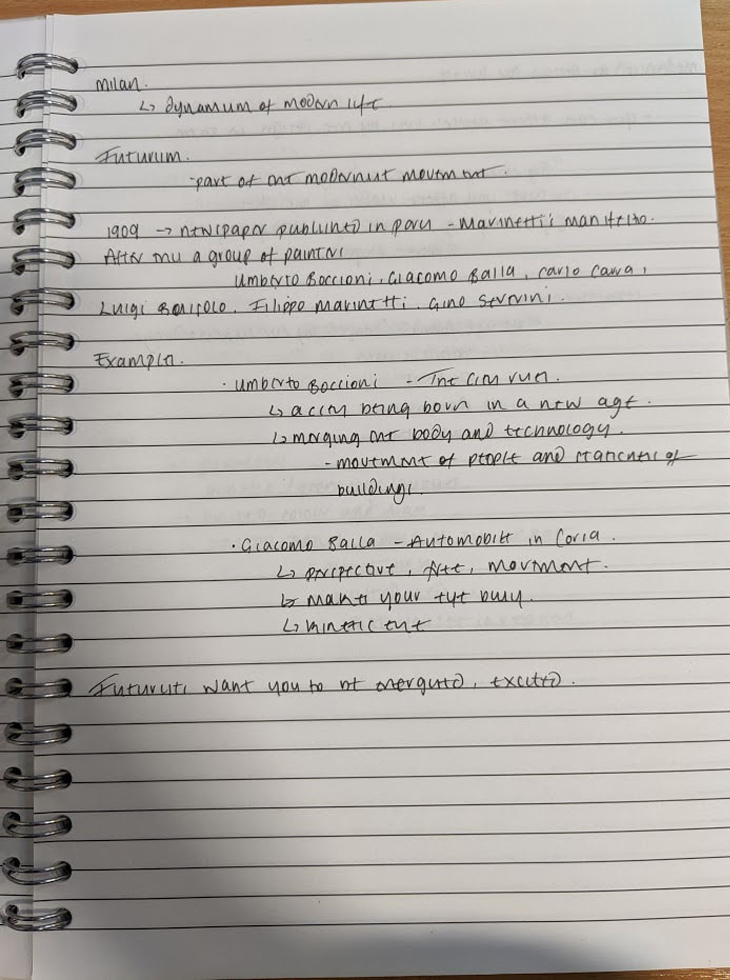 Milan.
↳ dynamism of modern life
Futurism.
- part of the modernist movement.
1909 → newspaper published in paris - Marinetti's manifesto.
After this a group of painters
Umberto Boccioni, Giacomo Balla, Carlo Carra,
Luigi Russolo, Filippo Marinetti, Gino Severini.
Examples.
· Umberto Boccioni - The City rises.
↳ a city being born in a new age.
↳ merging the body and technology.
- movement of people and staticness of
buildings.
· Giacomo Balla - Automobile in Corsa.
↳ perspective, movement.
↳ makes your eye busy.
↳ kinetic
Futurists want you to be energised, excited.